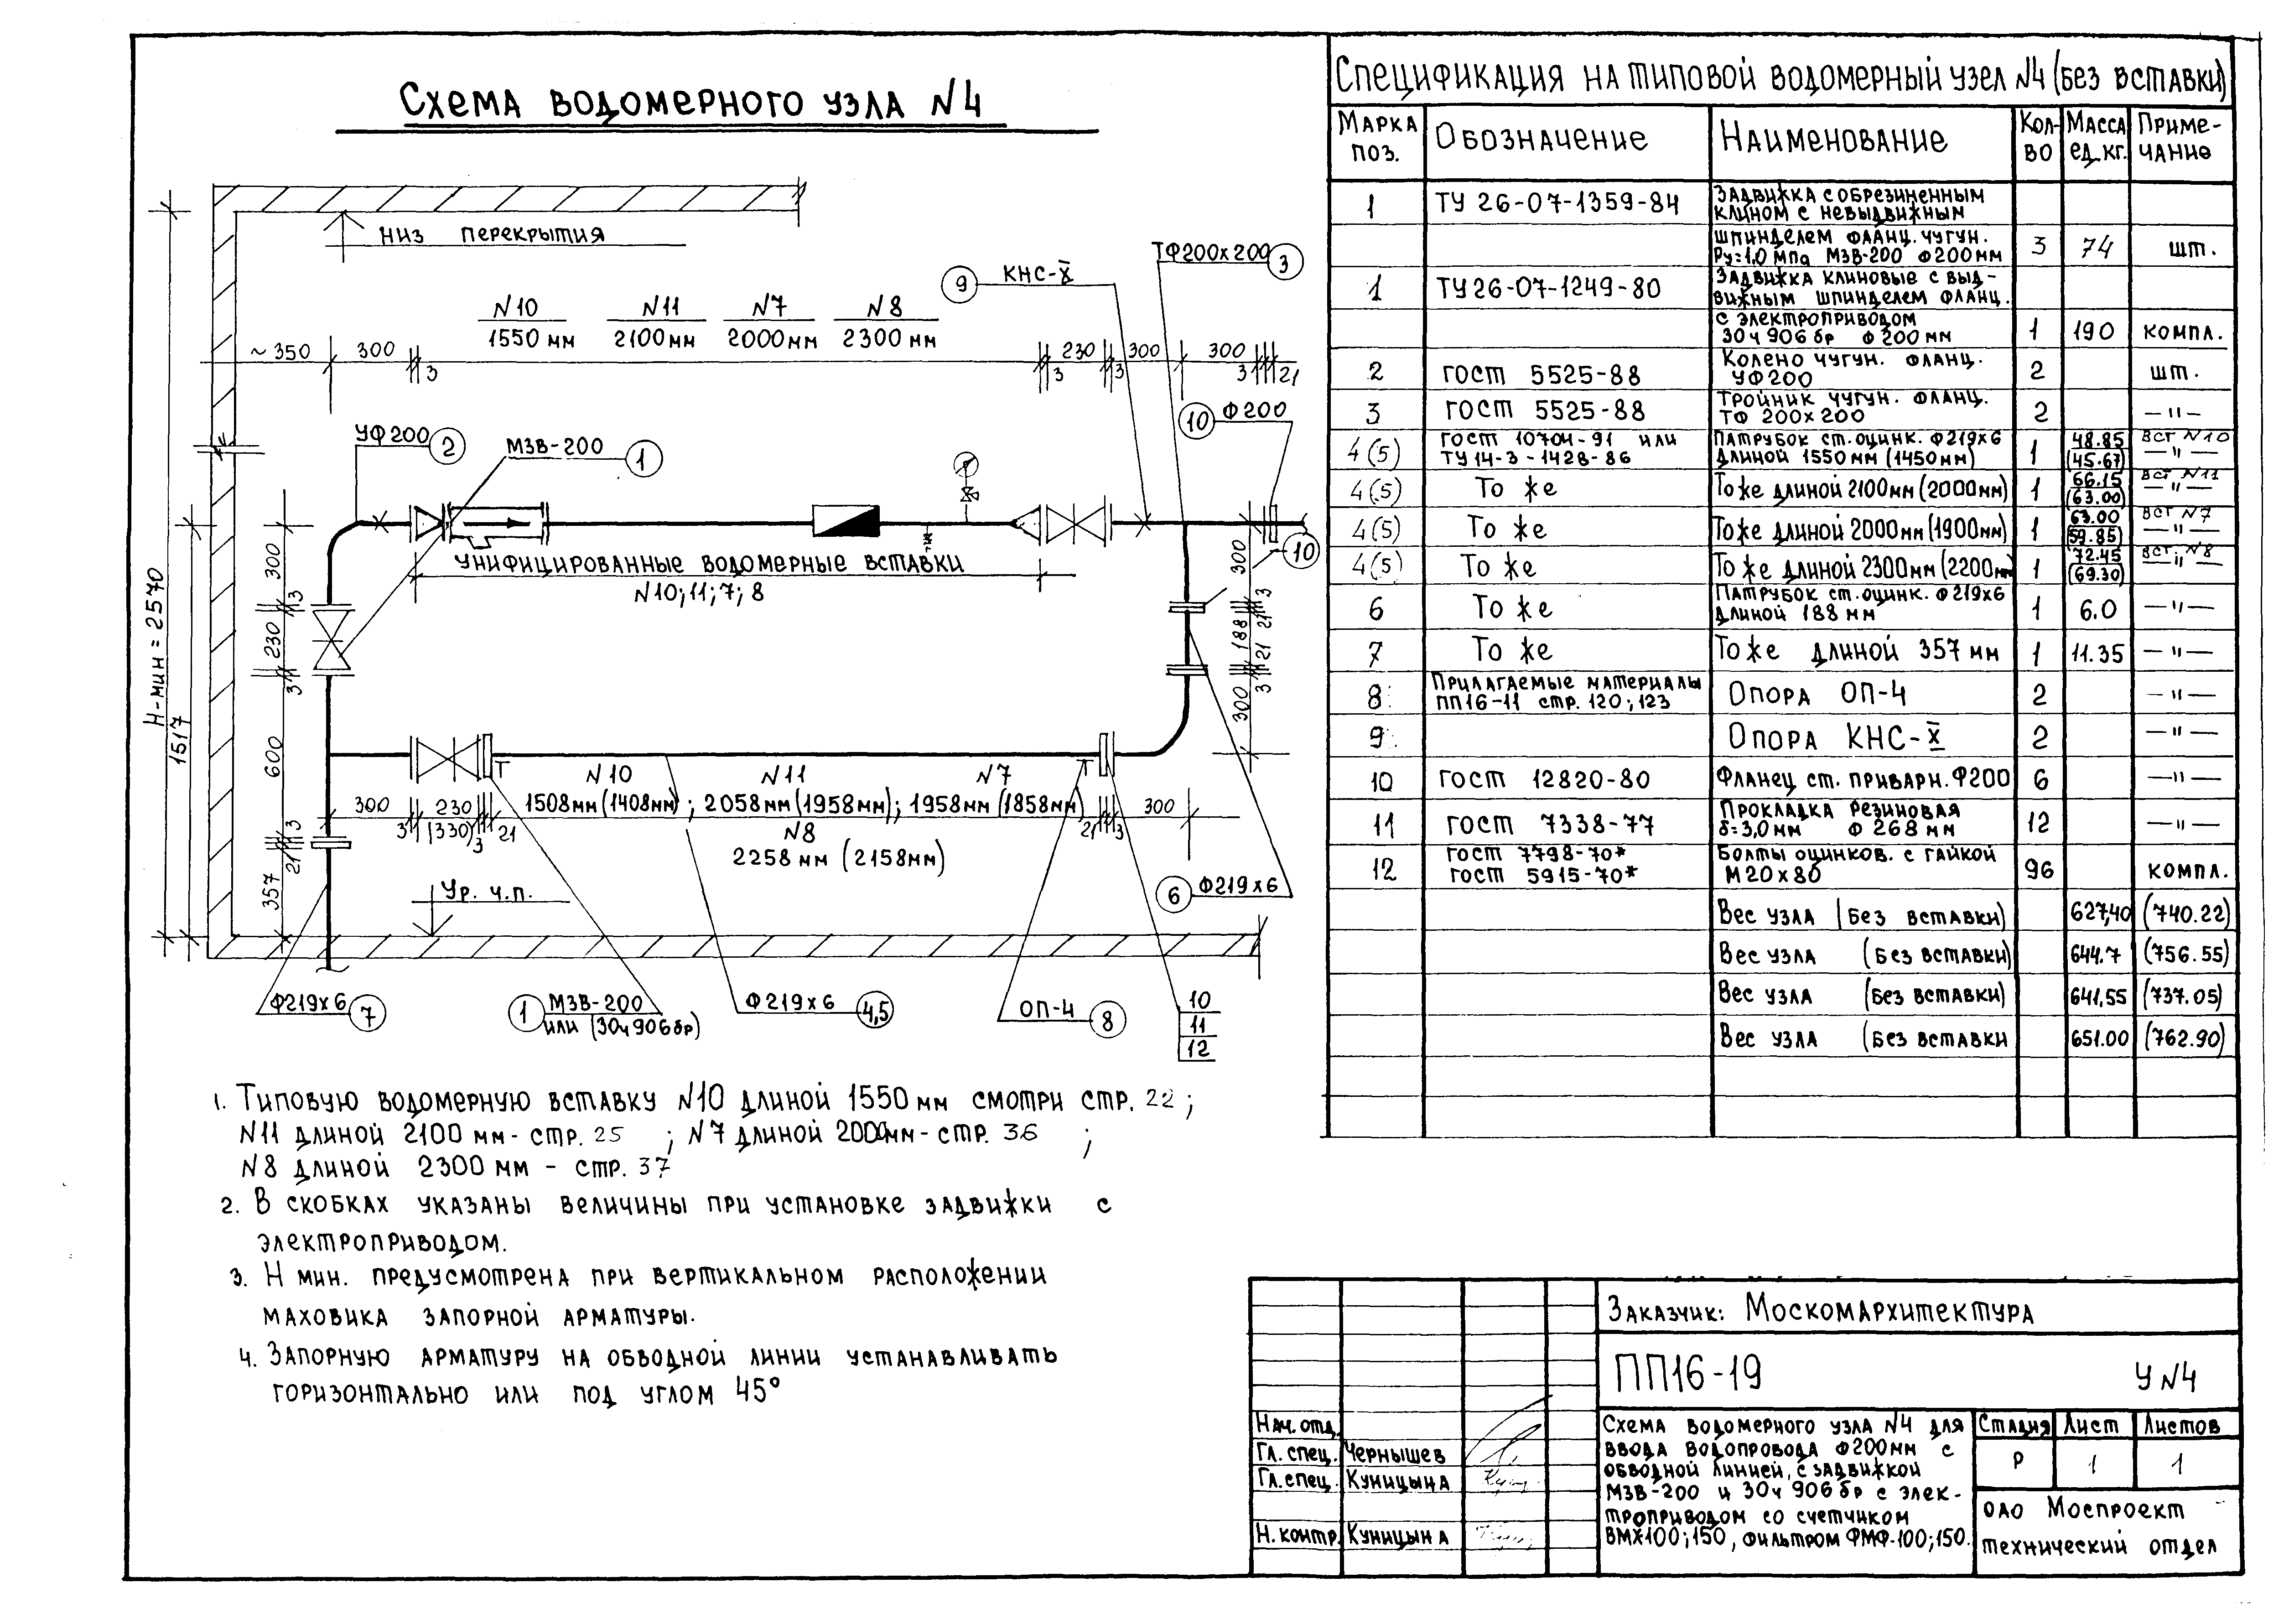 Схема водомерного узла N4
Низ перекрытия
N10 N11 N7 N8
1550 мм 2100мм 2000мм 2300 мм
~350 300 3 3 230 3 300 300 3 21
9 КНС-X
ТФ200х200 3
10 Ф200
УФ200 2
МЗВ-200 1
Унифицированные водомерные вставки
N10; 11; 7; 8
10
Н-мин = 2570
1517
300
3
230
3
600
3
21
357
300
3
21
188
21
3
300
N10 N11 N7
1508мм (1408мм) ; 2058мм (1958мм) ; 1958мм (1858мм)
N8
2258 мм (2158мм)
300 3 230 (330) 3 21 21 3 300
Ур. ч.п.
6 Ф219х6
Ф219х6 7
1 МЗВ-200
или (30ч906бр)
Ф219х6 4,5
ОП-4 8
10
11
12
1. Типовую водомерную вставку N10 длиной 1550мм смотри стр. 22 ;
N11 длиной 2100 мм - стр. 25 ; N7 длиной 2000мм - стр. 36 ;
N8 длиной 2300 мм - стр. 37
2. В скобках указаны величины при установке задвижки с
электроприводом.
3. Н мин. предусмотрена при вертикальном расположении
маховика запорной арматуры.
4. Запорную арматуру на обводной линии устанавливать
горизонтально или под углом 45°
Спецификация на типовой водомерный узел N4 (без вставки)
Марка поз. Обозначение Наименование Кол-во Масса ед. кг. Примечание
1 ТУ 26-07-1359-84 Задвижка с обрезиненным
клином с невыдвижным
шпинделем фланц. чугун.
Ру=1,0 мпа МЗВ-200 Ф200мм 3 74 шт.
1 ТУ 26-07-1249-80 Задвижка клиновые с выд-
вижным шпинделем фланц.
с электроприводом
30ч906бр Ф200 мм 1 190 компл.
2 ГОСТ 5525-88 Колено чугун. фланц.
УФ200 2 шт.
3 ГОСТ 5525-88 Тройник чугун. фланц.
ТФ 200х200 2 —"—
4(5) ГОСТ 10704-91 или
ТУ 14-3-1428-86 Патрубок ст. оцинк. Ф219х6
длиной 1550 мм (1450мм) 1 48.85 (45.67) вст N10 —"—
4(5) То же То же длиной 2100мм (2000мм) 1 66.15 (63.00) вст N11 —"—
4(5) То же То же длиной 2000мм (1900мм) 1 63.00 (59.85) вст N7 —"—
4(5) То же То же длиной 2300мм (2200мм 1 72.45 (69.30) вст. N8 —"—
6 То же Патрубок ст. оцинк. Ф219х6
длиной 188 мм 1 6.0 —"—
7 То же То же длиной 357 мм 1 11.35 —"—
8 Прилагаемые материалы
ПП16-11 стр. 120; 123 Опора ОП-4 2 —"—
9 Опора КНС-X 2 —"—
10 ГОСТ 12820-80 Фланец ст. приварн. Ф200 6 —"—
11 ГОСТ 7338-77 Прокладка резиновая
δ=3,0мм Ф 268 мм 12 —"—
12 ГОСТ 7798-70*
ГОСТ 5915-70* Болты оцинков. с гайкой
М20х80 96 компл.
Вес узла (Без вставки) 627,40 (740.22)
Вес узла (Без вставки) 644.7 (756.55)
Вес узла (Без вставки) 641,55 (737.05)
Вес узла (Без вставки 651.00 (762.90)
Заказчик: Москомархитектура
ПП16-19 УN4
Нач. отд.
Гл. спец. Чернышев
Гл. спец. Куницына
Н. контр. Куницына
Схема водомерного узла N4 для
ввода водопровода Ф200мм с
обводной линией, с задвижкой
МЗВ-200 и 30ч906бр с элек-
троприводом со счетчиком
ВМХ100; 150, фильтром ФМФ-100; 150.
Стадия Лист Листов
Р 1 1
ОАО Моспроект
технический отдел